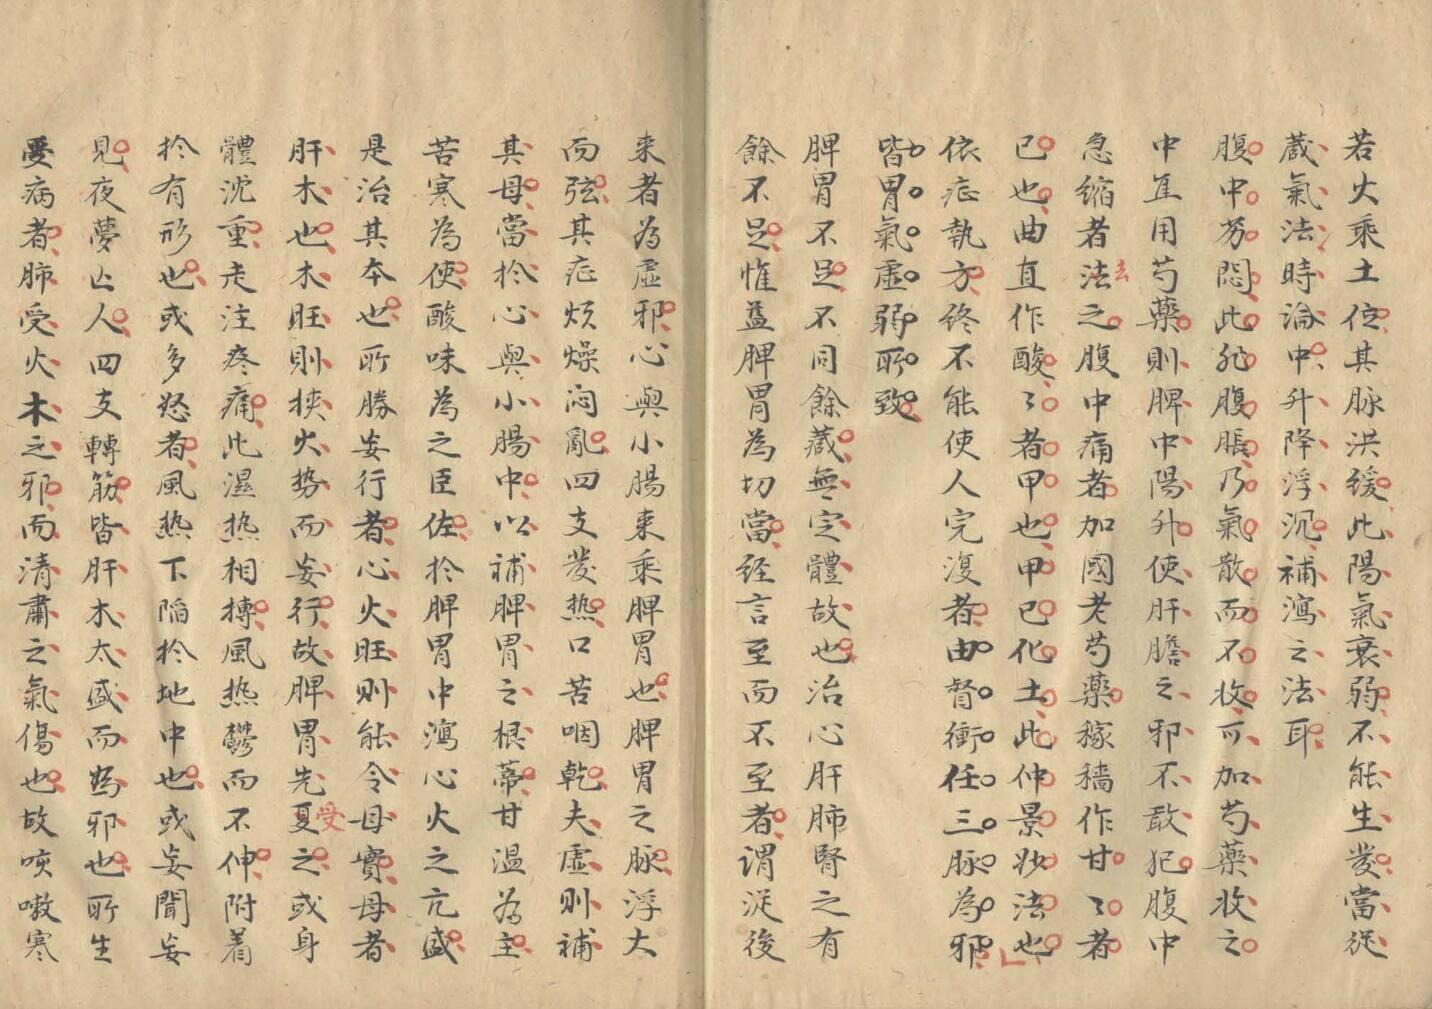 若火乘土位其脉洪緩此陽氣衰弱不能生發當從
藏氣法時論中升降浮沉補瀉之法耳
腹中夯悶此非腹脹乃氣散而不收可加芍藥收之
中焦用芍藥則脾中陽升使肝膽之邪不敢犯腹中
急縮者法去之腹中痛者加國老芍藥稼穡作甘〻者
已也曲直作酸〻者甲也甲已化土此仲景妙法也
依症執方終不能使人完復者由督衝任三脉為邪
皆胃氣虛弱所致
脾胃不足不同餘藏無定體故也治心肝肺腎之有
餘不足惟益脾胃為切當経言至而不至者謂從後
来者為虛邪心與小腸来乘脾胃也脾胃之脉浮大
而弦其症煩燥闷亂四支發热口苦咽乾夫虛則補
其母當扵心與小腸中以補脾胃之根蒂甘温為主
苦寒為使酸味為之臣佐扵脾胃中瀉心火之亢盛
是治其本也所勝妄行者心火旺则能令母實母者
肝木也木旺則挾火势而妄行故脾胃先夏受之或身
體沈重走注疼痛此濕热相搏風热鬱而不伸附着
扵有形也或多怒者風热下陷扵地中也或妄聞妄
見夜夢亡人四支轉筋皆肝木太盛而為邪也所生
受病者肺受火木之邪而清肅之氣傷也故咳嗽寒